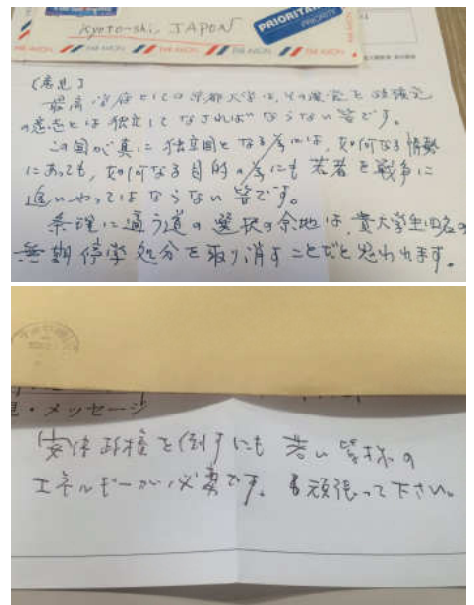 Kyoto-shi, JAPAN
PRIORITAIRE
PRIORITY
PAR AVION
[意見]
最高学府としての京都大学は、その運営を政権の
の意志とは独立してなされなければならない筈です。
この国が真に独立国となる為には、如何なる情勢
にあっても、如何なる目的の為にも若者を戦争に
追いやってはならない筈です。
条理に適う道の選択の余地は、貴大学生四名の
無期停学処分を取り消すことだと思われます。
見・メッセージ
安倍政権を倒すにも若い皆様の
エネルギーが必要です。頑張って下さい。